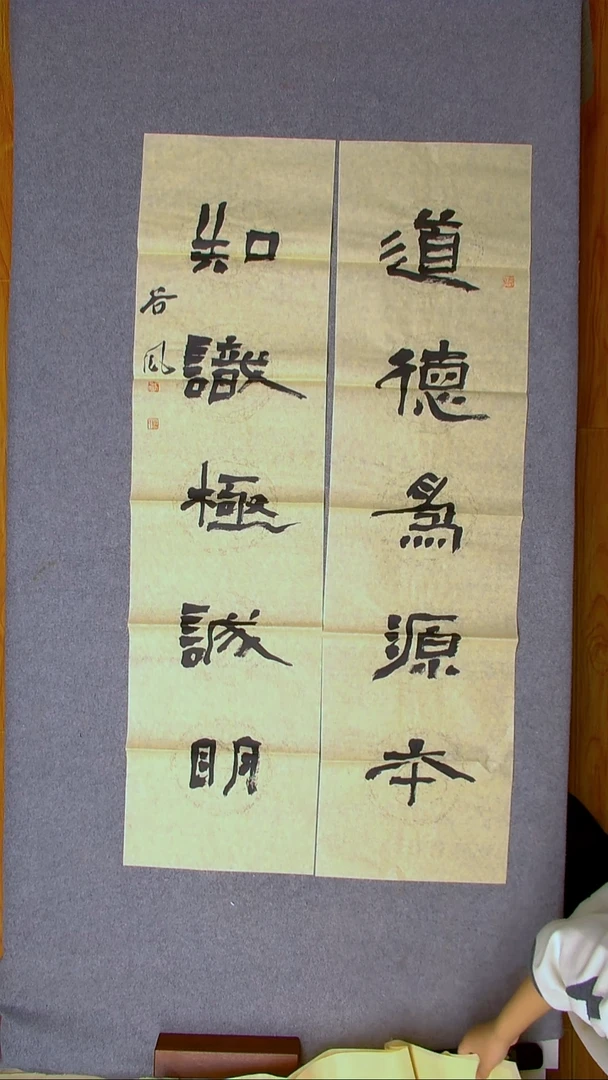 道德為源本
知識極誠明
谷風